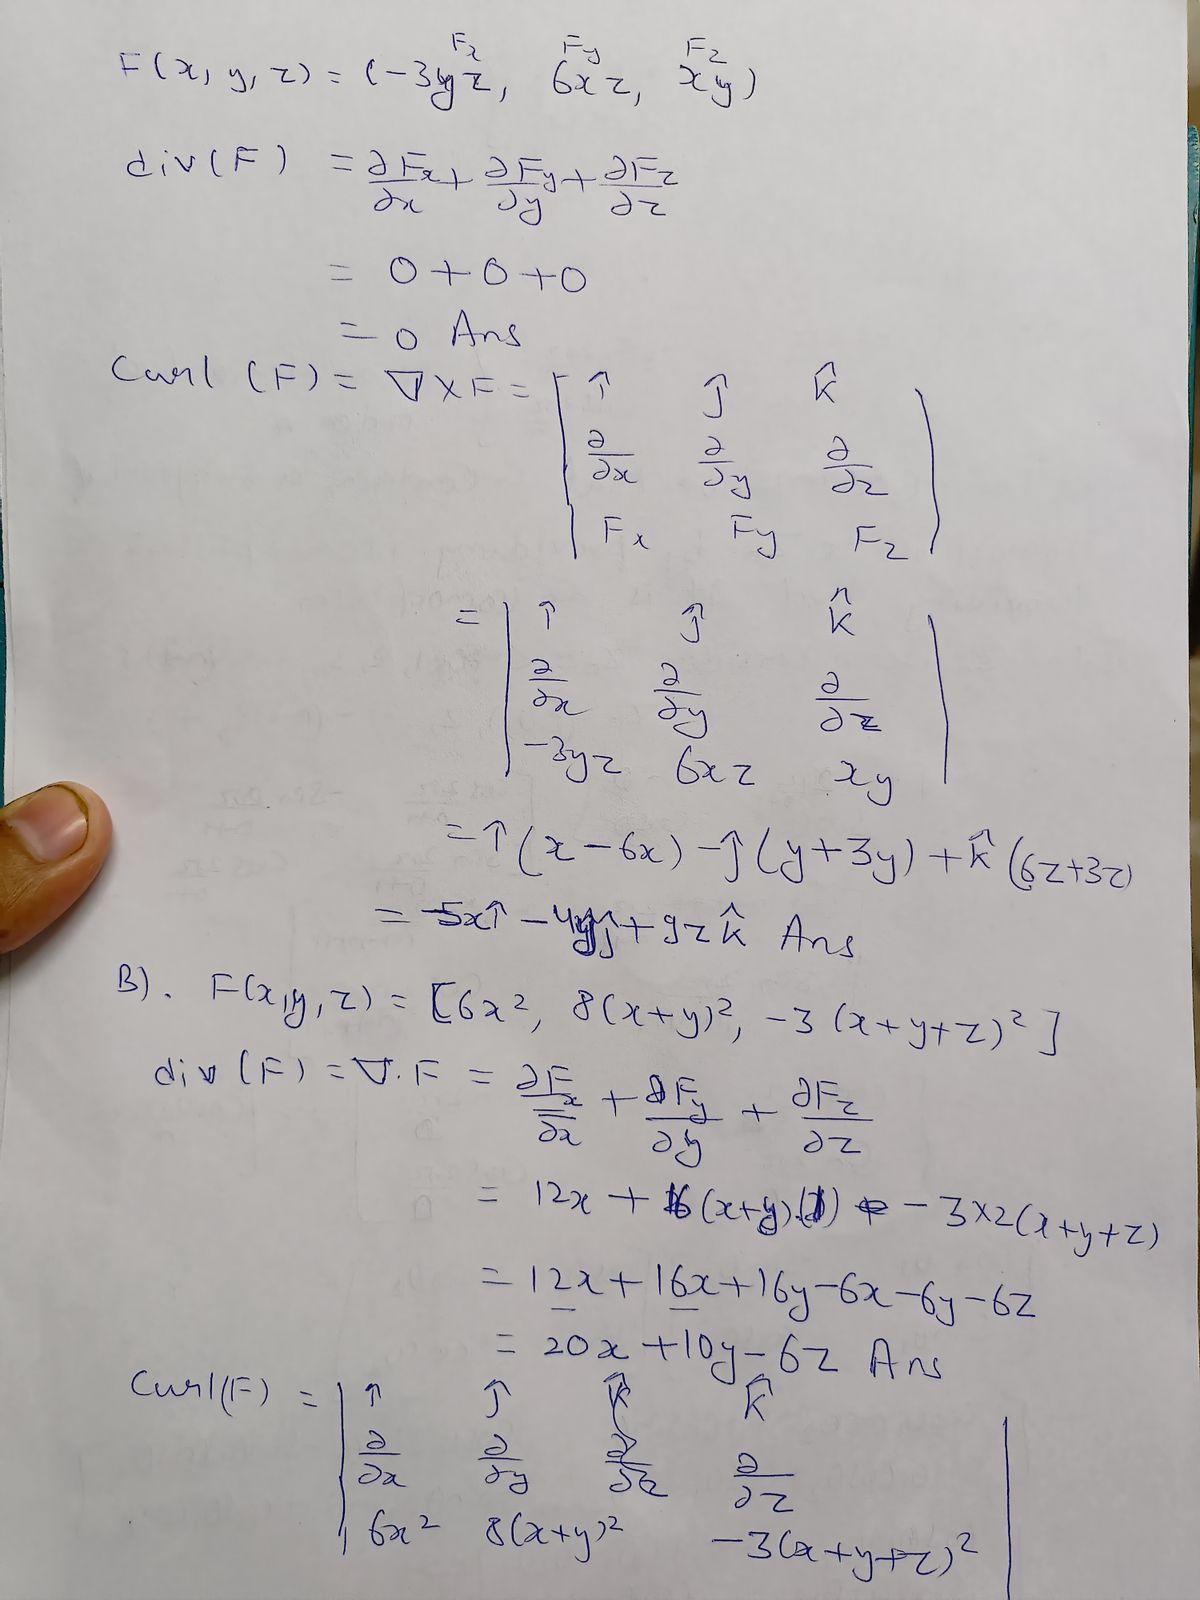 Fx Fy Fz
F(x, y, z) = (-3yz, 6xz, xy)
div(F) = ∂Fx/∂x + ∂Fy/∂y + ∂Fz/∂z
= 0+0+0
= 0 Ans
Curl (F) = ∇ X F = | î ĵ k̂ |
| ∂/∂x ∂/∂y ∂/∂z |
| Fx Fy Fz |
= | î ĵ k̂ |
| ∂/∂x ∂/∂y ∂/∂z |
| -3yz 6xz xy |
= î (x-6x) - ĵ (y+3y) + k̂ (6z+3z)
= -5xî - 4yĵ + 9zk̂ Ans
B). F(x,y,z) = [6x², 8(x+y)², -3(x+y+z)²]
div (F) = ∇.F = ∂Fx/∂x + ∂Fy/∂y + ∂Fz/∂z
= 12x + 16(x+y).(1) - 3X2(x+y+z)
= 12x + 16x + 16y - 6x - 6y - 6z
= 20x + 10y - 6z Ans
Curl(F) = | î ĵ k̂ |
| ∂/∂x ∂/∂y ∂/∂z |
| 6x² 8(x+y)² -3(x+y+z)² |